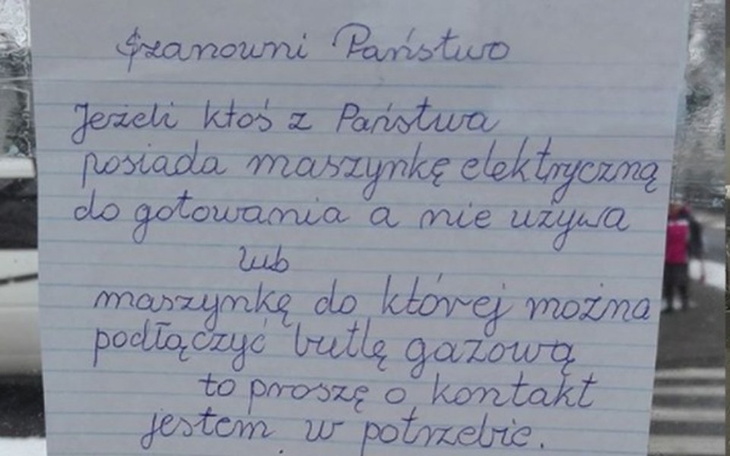 Szanowni Państwo
Jeżeli ktoś z Państwa
posiada maszynkę elektryczną
do gotowania a nie używa
lub
maszynkę do której można
podłączyć butlę gazową
to proszę o kontakt
jestem w potrzebie.